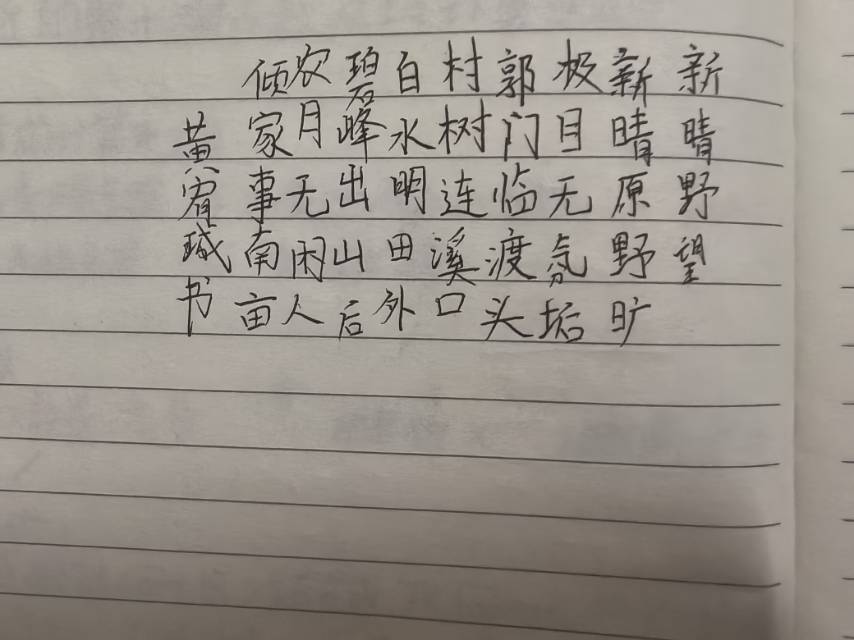 新晴野望
新晴原野旷
极目无氛垢
郭门临渡头
村树连溪口
白水明田外
碧峰出山后
农月无闲人
倾家事南亩
黄瑊书